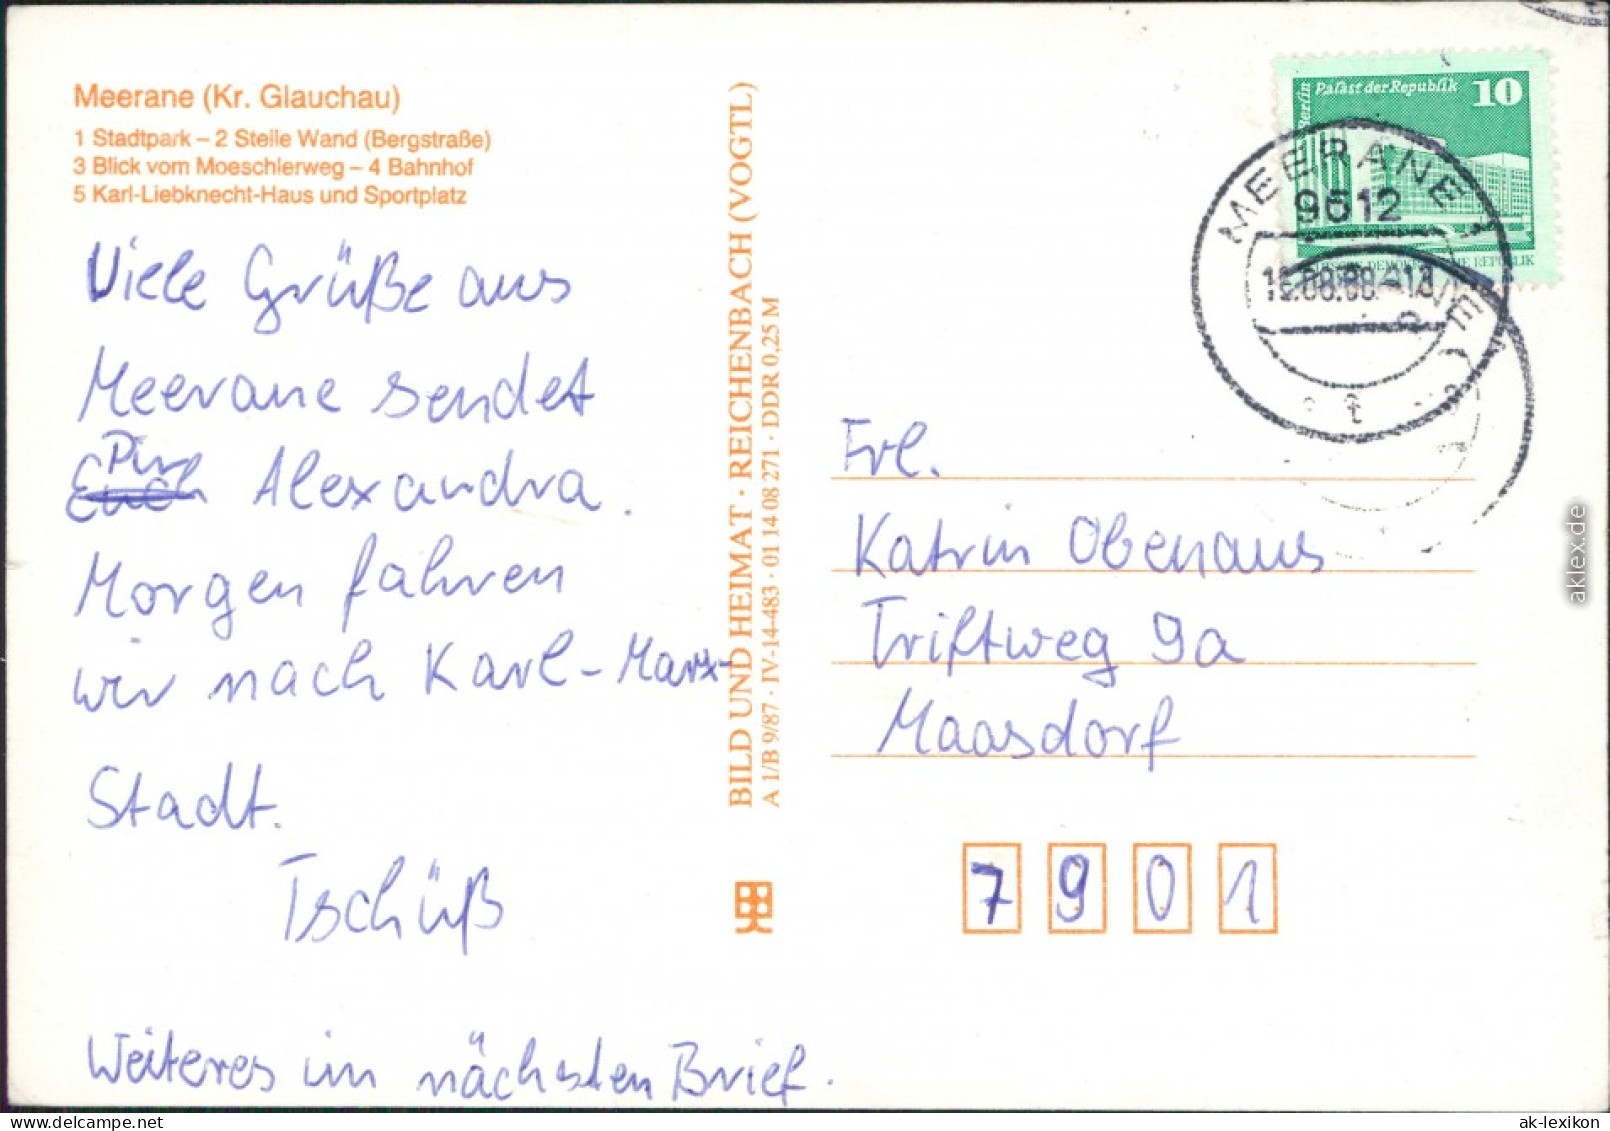 Meerane (Kr. Glauchau)
1 Stadtpark – 2 Steile Wand (Bergstraße)
3 Blick vom Moeschlerweg – 4 Bahnhof
5 Karl-Liebknecht-Haus und Sportplatz
Viele Grüße aus
Meerane sendet
Dir
Euch Alexandra.
Morgen fahren
wir nach Karl-Marx-
Stadt.
Tschüß
Weiteres im nächsten Brief.
BILD UND HEIMAT · REICHENBACH (VOGTL)
A 1/B 9/87 · IV-14-483 · 01 14 08 271 · DDR 0,25 M
Berlin
Palast der Republik 10
MEERANE 1
9612
Frl.
Katrin Obenaus
Triftweg 9a
Maasdorf
7901
aklex.de
ak-lexikon